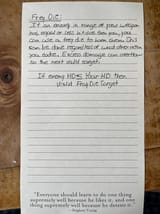 Fray Die:
If an enemy in range of your weapon
has equal or less HD than you, you
can use a fray die to harm them. This
can be done regardless of what other action
you take. Excess damage can continue
to the next valid target.
If enemy HD ≤ Your HD then
Valid Fray Die Target
"Everyone should learn to do one thing
supremely well because he likes it, and one thing
supremely well because he detests it."
Brigham Young